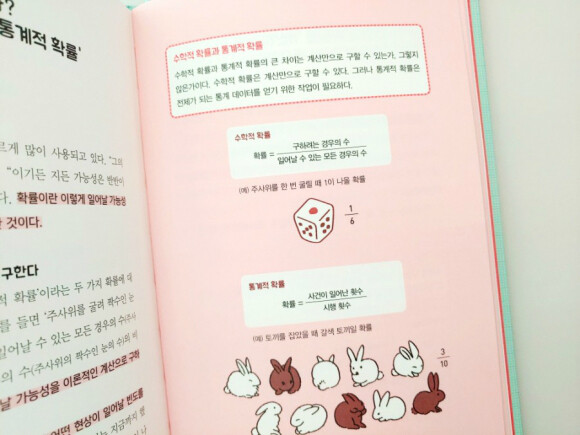 ?
통계적 확률'
르게 많이 사용되고 있다. '그의
"이기든 지든 가능성은 반반이
확률이란 이렇게 일어날 가능성
한 것이다.
구한다
적 확률'이라는 두 가지 확률에 대
를 들면 '주사위를 굴려 짝수인 눈
일어날 수 있는 모든 경우의 수(주사
의 수(주사위의 짝수인 눈의 수)의 비
날 가능성을 이론적인 계산으로 구하
어떤 현상이 일어날 빈도를
는 지금까지 했
수학적 확률과 통계적 확률
수학적 확률과 통계적 확률의 큰 차이는 계산만으로 구할 수 있는가, 그렇지
않은가이다. 수학적 확률은 계산만으로 구할 수 있다. 그러나 통계적 확률은
전체가 되는 통계 데이터를 얻기 위한 작업이 필요하다.
수학적 확률
확률 = 구하려는 경우의 수
일어날 수 있는 모든 경우의 수
(예) 주사위를 한 번 굴릴 때 1이 나올 확률
1
6
통계적 확률
확률 = 사건이 일어난 횟수
시행 횟수
(예) 토끼를 잡았을 때 갈색 토끼일 확률
3
10